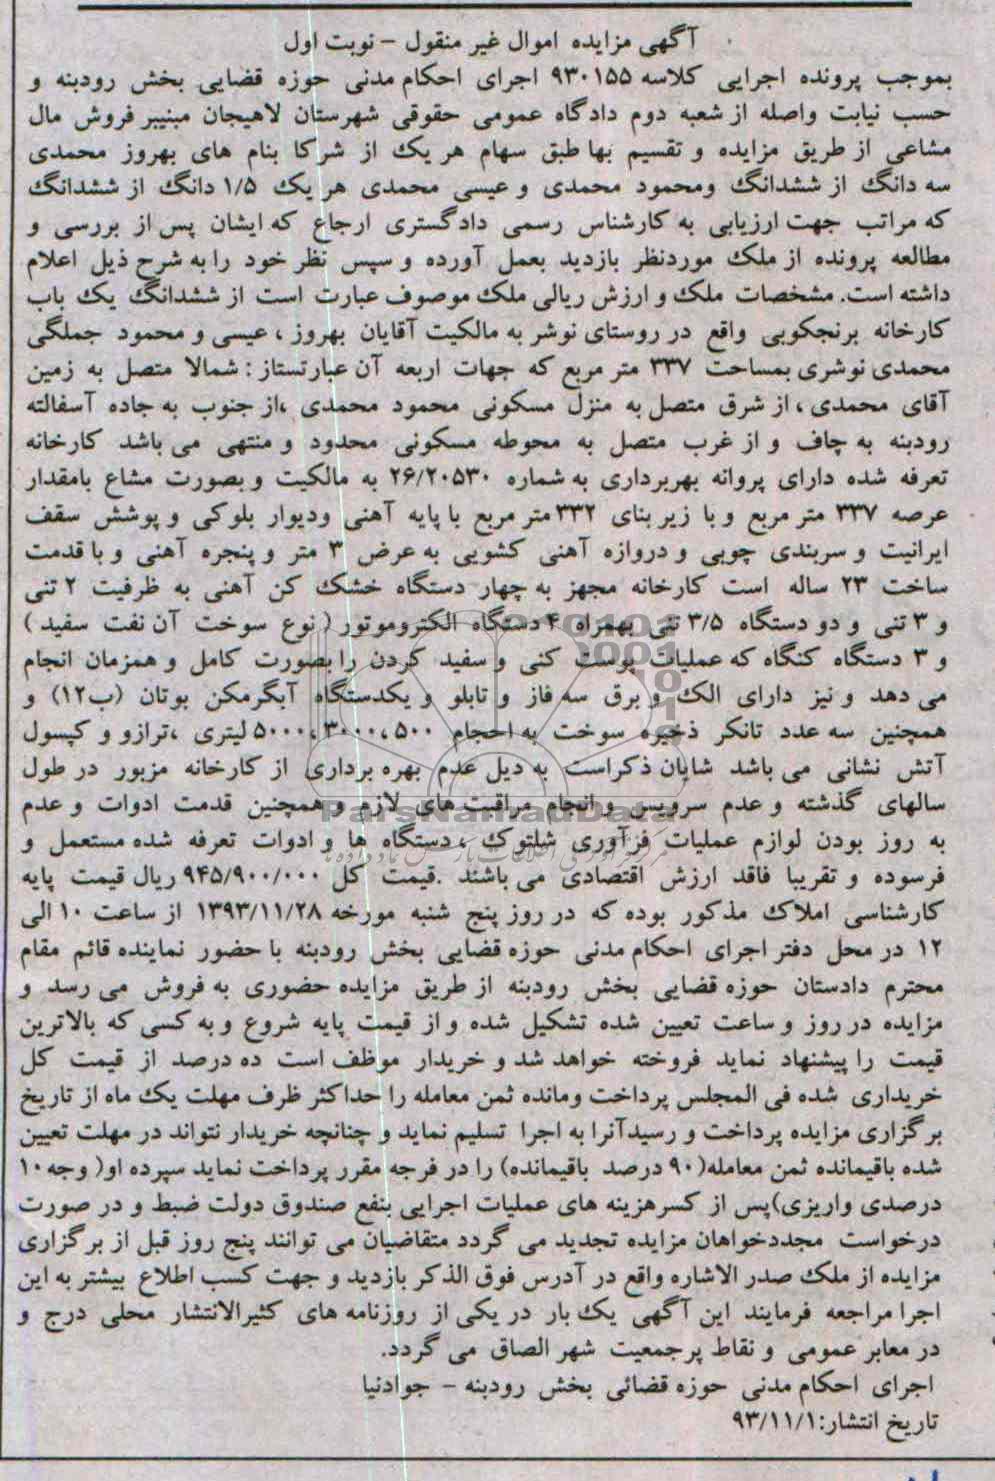 آگهی مزایده اموال غیر منقول – نوبت اول
بموجب پرونده اجرایی کلاسه ۹۳۰۱۵۵ اجرای احکام مدنی حوزه قضایی بخش رودبنه و
حسب نیابت واصله از شعبه دوم دادگاه عمومی حقوقی شهرستان لاهیجان مبنیبر فروش مال
مشاعی از طریق مزایده و تقسیم بها طبق سهام هر یک از شرکا بنام های بهروز محمدی
سه دانگ از ششدانگ ومحمود محمدی و عیسی محمدی هر یک ۱/۵ دانگ از ششدانگ
که مراتب جهت ارزیابی به کارشناس رسمی دادگستری ارجاع که ایشان پس از بررسی و
مطالعه پرونده از ملک موردنظر بازدید بعمل آورده و سپس نظر خود را به شرح ذیل اعلام
داشته است. مشخصات ملک و ارزش ریالی ملک موصوف عبارت است از ششدانگ یک باب
کارخانه برنجکوبی واقع در روستای نوشر به مالکیت آقایان بهروز ، عیسی و محمود جملگی
محمدی نوشری بمساحت ۳۳۷ متر مربع که جهات اربعه آن عبارتستاز : شمالا متصل به زمین
آقای محمدی ، از شرق متصل به منزل مسکونی محمود محمدی ،از جنوب به جاده آسفالته
رودبنه به چاف و از غرب متصل به محوطه مسکونی محدود و منتهی می باشد کارخانه
تعرفه شده دارای پروانه بهربرداری به شماره ۲۶/۲۰۵۳۰ به مالکیت و بصورت مشاع بامقدار
عرصه ۳۳۷ متر مربع و با زیر بنای ۳۳۲ متر مربع با پایه آهنی ودیوار بلوکی و پوشش سقف
ایرانیت و سربندی چوبی و دروازه آهنی کشویی به عرض ۳ متر و پنجره آهنی و با قدمت
ساخت ۲۳ ساله است کارخانه مجهز به چهار دستگاه خشک کن آهنی به ظرفیت ۲ تنی
و ۳ تنی و دو دستگاه ۳/۵ تنی بهمراه ۴ دستگاه الکتروموتور ( نوع سوخت آن نفت سفید )
و ۳ دستگاه کنگاه که عملیات پوست کنی و سفید کردن را بصورت کامل و همزمان انجام
می دهد و نیز دارای الک و برق سه فاز و تابلو و یکدستگاه آبگرمکن بوتان (ب۱۲) و
همچنین سه عدد تانکر ذخیره سوخت به احجام ۵۰۰ ،۳۰۰۰ ،۵۰۰۰ لیتری ،ترازو و کپسول
آتش نشانی می باشد شایان ذکراست به دیل عدم بهره برداری از کارخانه مزبور در طول
سالهای گذشته و عدم سرویس و انجام مراقبت های لازم و همچنین قدمت ادوات و عدم
به روز بودن لوازم عملیات فرآوری شلتوک ، دستگاه ها و ادوات تعرفه شده مستعمل و
فرسوده و تقریبا فاقد ارزش اقتصادی می باشند .قیمت کل ۹۴۵/۹۰۰/۰۰۰ ریال قیمت پایه
کارشناسی املاک مذکور بوده که در روز پنج شنبه مورخه ۱۳۹۳/۱۱/۲۸ از ساعت ۱۰ الی
۱۲ در محل دفتر اجرای احکام مدنی حوزه قضایی بخش رودبنه با حضور نماینده قائم مقام
محترم دادستان حوزه قضایی بخش رودبنه از طریق مزایده حضوری به فروش می رسد و
مزایده در روز و ساعت تعیین شده تشکیل شده و از قیمت پایه شروع و به کسی که بالاترین
قیمت را پیشنهاد نماید فروخته خواهد شد و خریدار موظف است ده درصد از قیمت کل
خریداری شده فی المجلس پرداخت ومانده ثمن معامله را حداکثر ظرف مهلت یک ماه از تاریخ
برگزاری مزایده پرداخت و رسیدآنرا به اجرا تسلیم نماید و چنانچه خریدار نتواند در مهلت تعیین
شده باقیمانده ثمن معامله(۹۰ درصد باقیمانده) را در فرجه مقرر پرداخت نماید سپرده او( وجه ۱۰
درصدی واریزی)پس از کسرهزینه های عملیات اجرایی بنفع صندوق دولت ضبط و در صورت
درخواست مجددخواهان مزایده تجدید می گردد متقاضیان می توانند پنج روز قبل از برگزاری
مزایده از ملک صدر الاشاره واقع در آدرس فوق الذکر بازدید و جهت کسب اطلاع بیشتر به این
اجرا مراجعه فرمایند این آگهی یک بار در یکی از روزنامه های کثیرالانتشار محلی درج و
در معابر عمومی و نقاط پرجمعیت شهر الصاق می گردد.
اجرای احکام مدنی حوزه قضائی بخش رودبنه – جوادنیا
تاریخ انتشار:۹۳/۱۱/۱
ParsNamadData